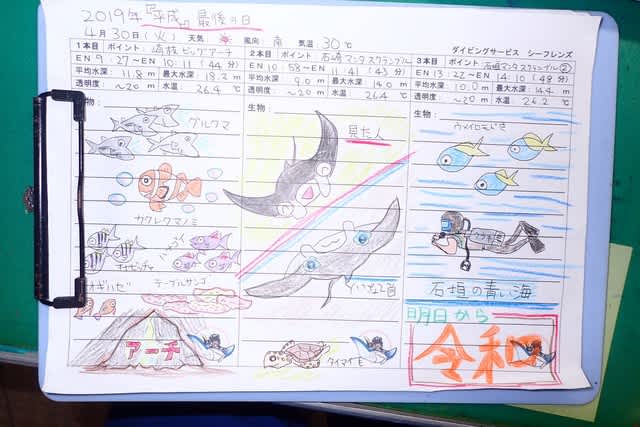 2019年『平成』最後の日
4月30日(火) 天気 風向 南 気温 30℃
ダイビングサービス シーフレンズ
1本目 ポイント: 崎枝ビッグアーチ
EN 9:27~EX 10:11 (44分)
平均水深: 11.8m 最大水深: 18.2m
透明度: ~20m 水温: 26.4℃
生物:
グルクマ
カクレクマノミ
テーブルサンゴ
ギハゼ
アーチ
2本目 ポイント: 石崎マンタスクランブル
EN 10:58~EX 11:41 (43分)
平均水深: 9.0m 最大水深: 14.0m
透明度: ~20m 水温: 26.4℃
生物:
見た人
タイマイも
3本目 ポイント: 石垣マンタスクランブル②
EN 13:22~EX 14:10 (48分)
平均水深: 10.0m 最大水深: 14.4m
透明度: ~20m 水温: 26.2℃
生物:
ウメイロモドキ
石垣の青い海
明日から
令和